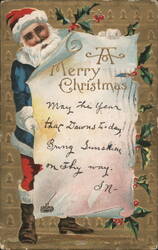 A
Merry
Christmas
May the Year
that Dawns today
Bring Sunshine
on Thy way.